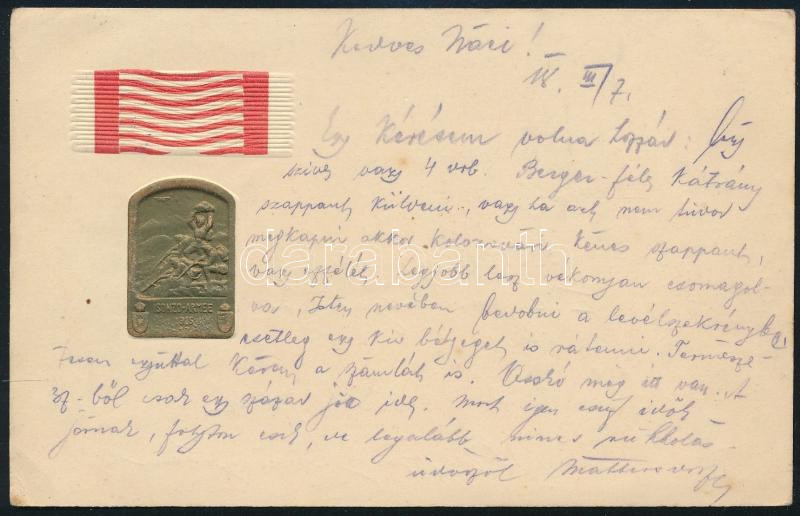 Kedves Náci!
18. III/7.
Egy kérésem volna hozzád: légy
szives vagy 4 drb. Berger-féle kátrány
szappant küldeni, vagy ha azt nem tudod
megkapni akkor kénes szappant,
vagy efféléț. Legjobb lesz vékonyan csomagol-
va, Isten nevében bedobni a levélszekrénybe,
esetleg egy kis bélyeget is rátenni. Természe-
tesen egyúttal kérem a számlát is. még itt van. A
ez-ből csak egy század jön ide. Most igen csúf idők
járnak, folyton esik, de legalább nincs
üdvözöl
ISONZO-ARMEE
1915
darabanth